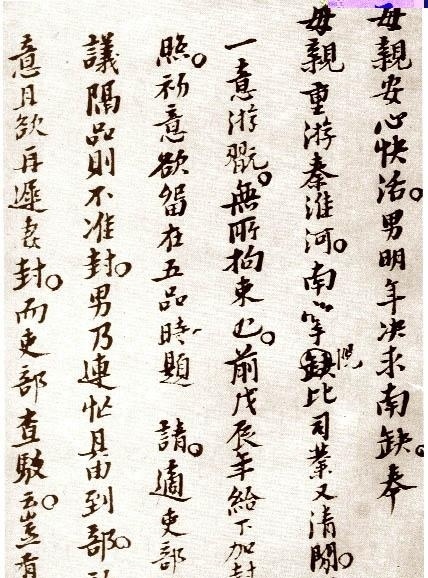 母親安心快活。男明年决求南缺。奉
母親重游秦淮河。南缺比司業又清閒。
一意游翫。無所拘束也。前戊辰年給下加封
照初意欲留在五品時題　請。適吏部
議隔品則不准封。男乃連忙具由到部。
意且欲再遲去封。而吏部查駁云。豈有